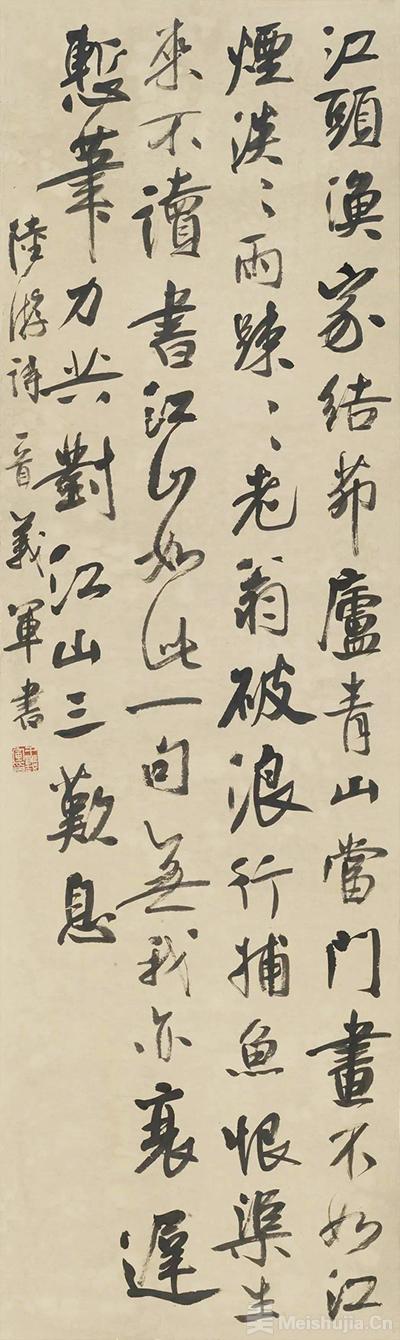 江頭漁家結茆廬青山當門畫不如江
煙淡〻雨踈〻老翁破浪行捕魚恨渠生
來不讀書江山如此一句無我亦衰遲
慙筆力共對江山三歎息
陸游詩一首義軍書
美 Meishujia.Cn